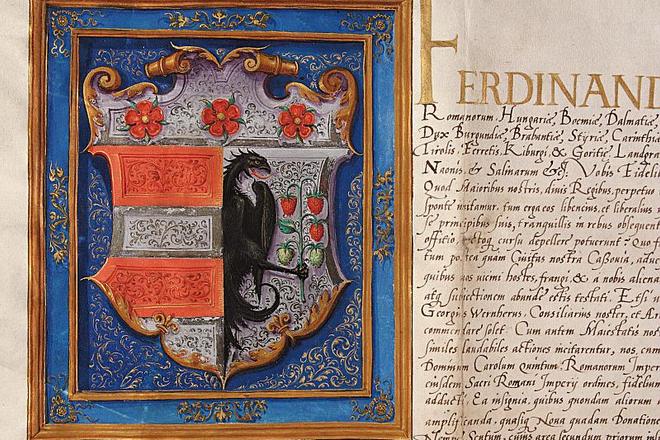 FERDINAND
Romanorum, Hungariæ, Boemiæ, Dalmatiæ,
Dux Burgundiæ, Brabantiæ, Styriæ, Carinthia
Tirolis, Ferretis, Kiburgi, & Goritiæ, Landgra
Naonis, & Salinarum &c. Vobis Fideli
Quod Maioribus nostris, diuis Regibus, perpetuo
sponte nitamur. tum erga eos libencius, et liberalius
se principibus suis, tranquillis in rebus obsequent
officio, cursu depellere potuerunt? Quo f
tum quam Ciuitas nostra Caßouia, adue
quibus aut vicini hostes, frangi, & a nobis aliena
atq subiectionem abunde estis testati. Etsi
Georgius Wernherus, Consiliarius noster, et
solet. Cum autem Maiestatis nost
similes laudabiles actiones incitarentur, nos, cum
Dominum Carolum Quintum Romanorum Imper
eiusdem Sacri Romani Imperij ordines, fidelium
adducti, Ea insignia, quibus quondam aliorum
Noua quadam Donatione